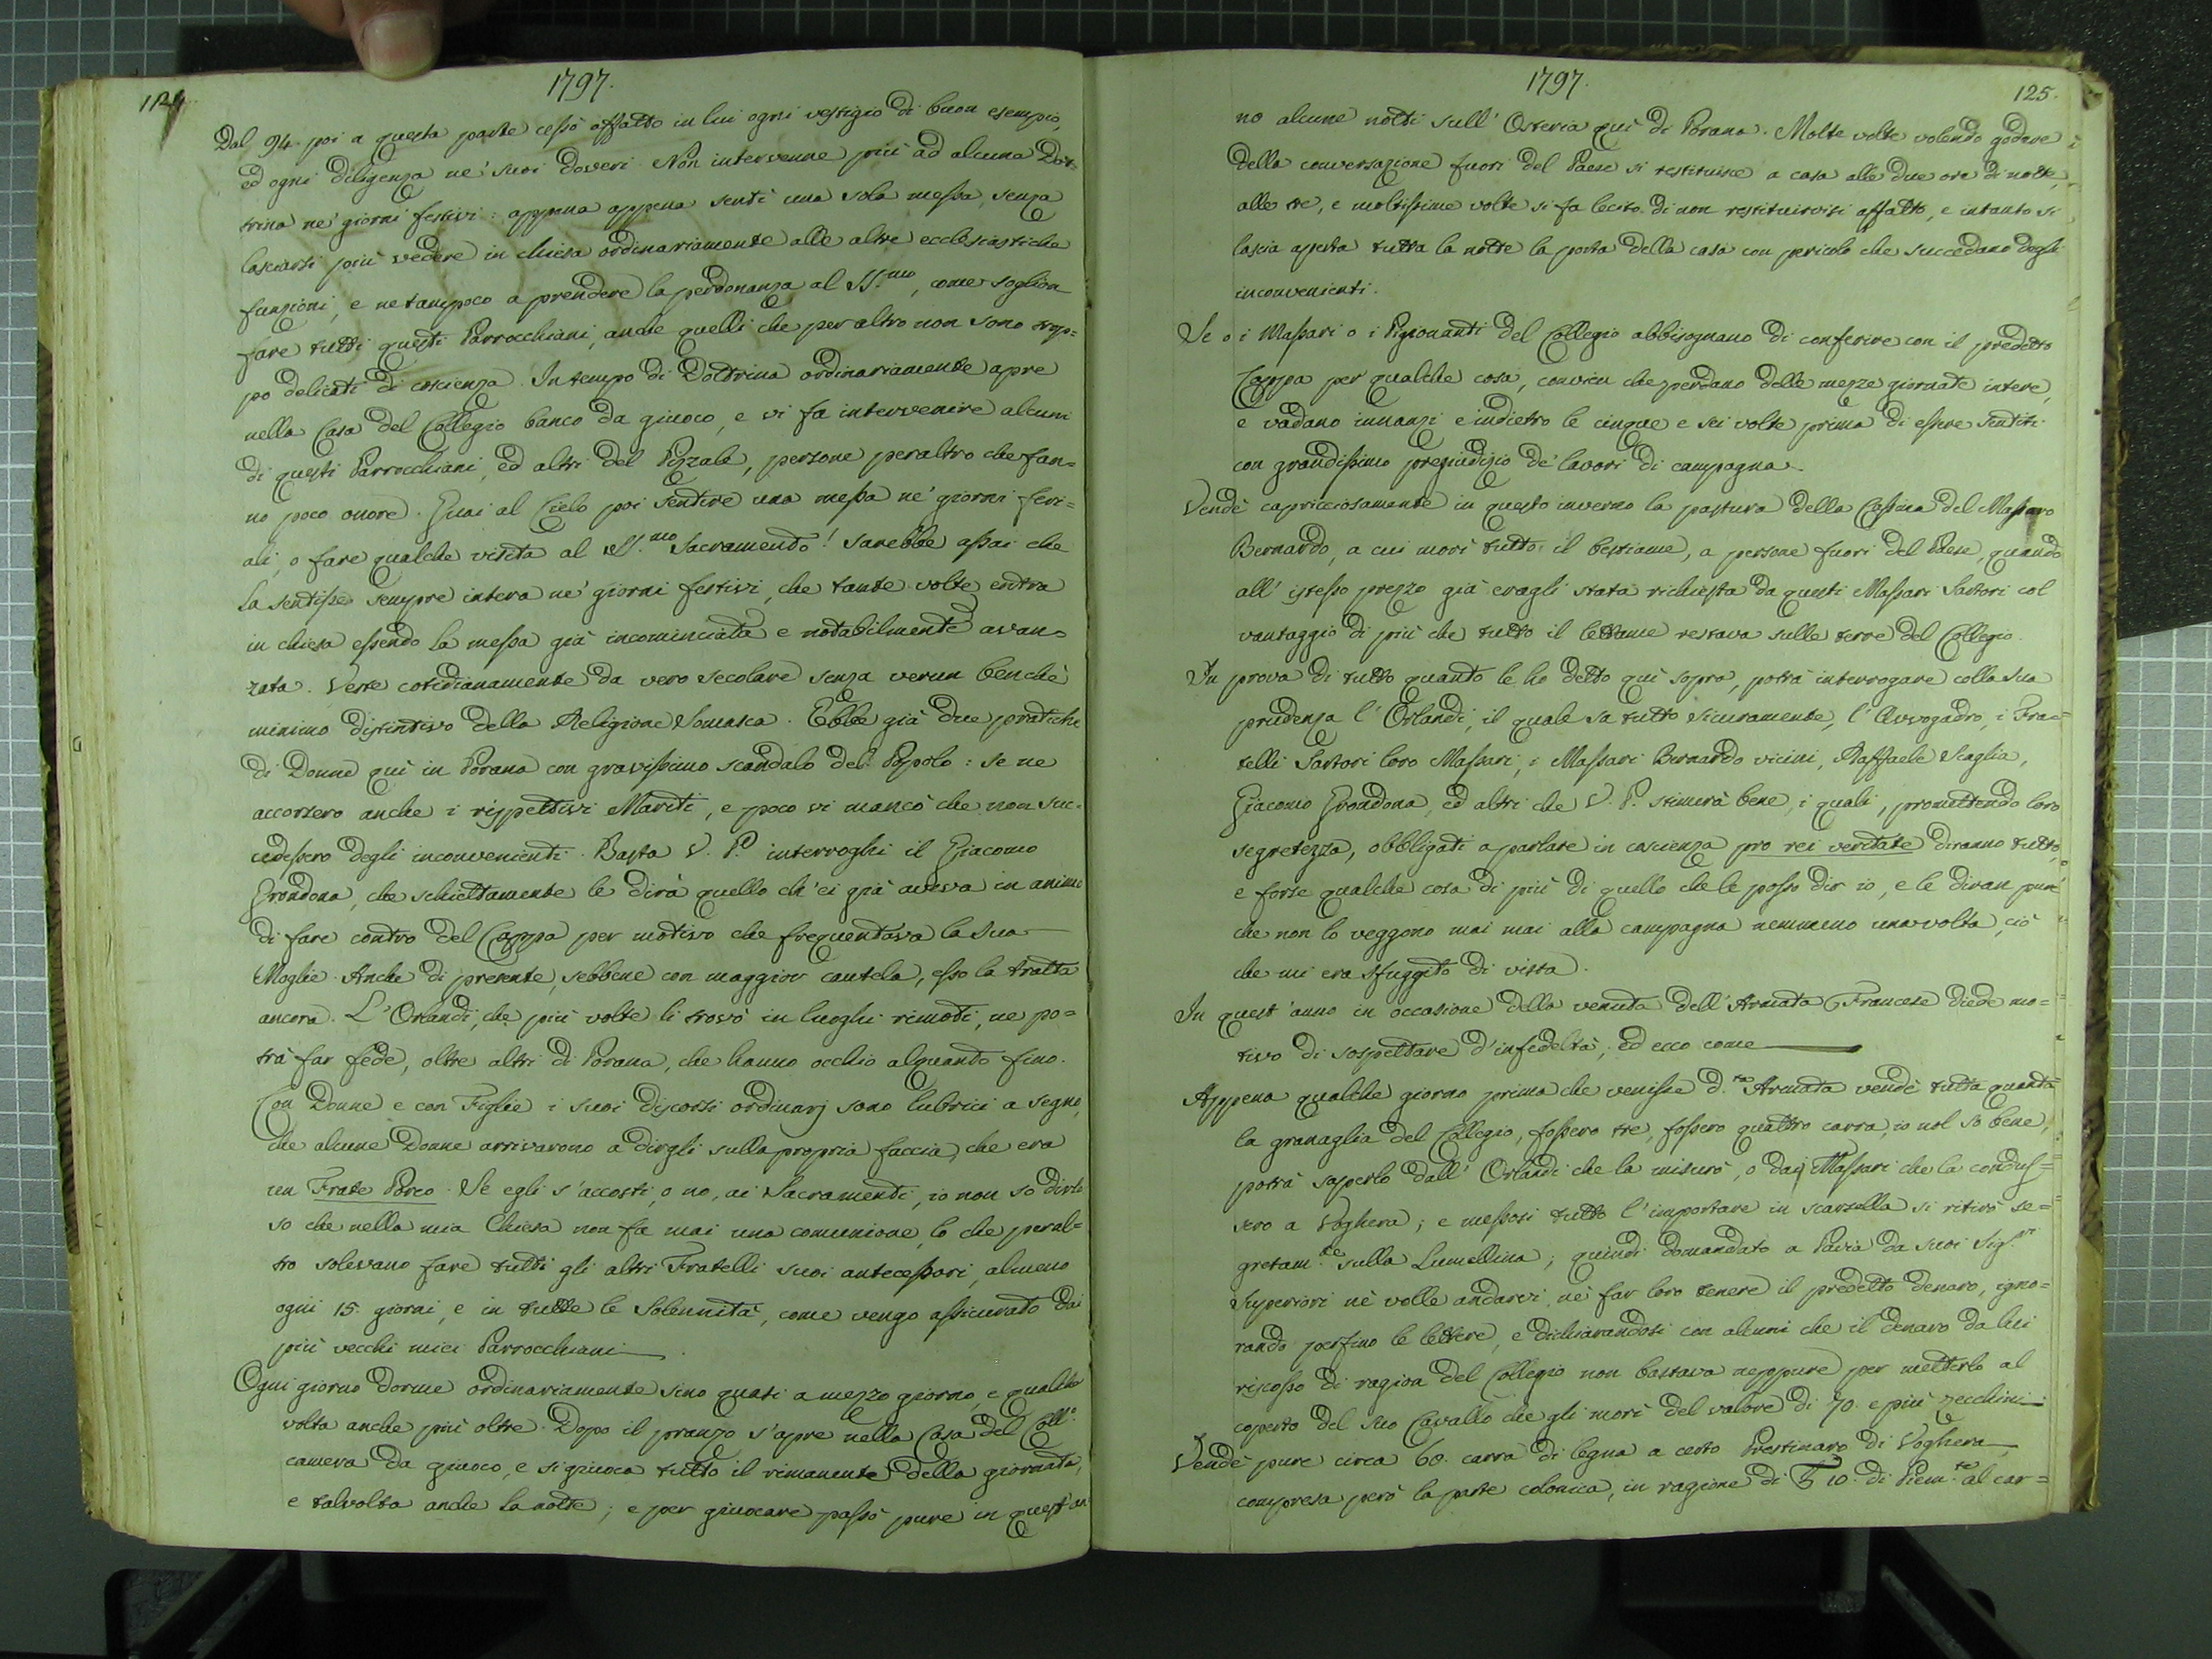 124.
1797.
Dal 94. poi a questa parte cessò affatto in lui ogni vestigio di buon esempio,
ed ogni diligenza ne' suoi doveri. Non intervenne più ad alcuna Dot=
trina ne' giorni festivi: appena appena sentì una sola messa, senza
lasciarsi più vedere in chiesa ordinariamente alle altre ecclesiastiche
funzioni, e ne tampoco a prendere la perdonanza al SS.mo, come soglion
fare tutti questi Parrocchiani, anche quelli che per altro non sono trop=
po delicati di coscienza. In tempo di Dottrina ordinariamente apre
nella Casa del Collegio banco da giuoco, e vi fa intervenire alcuni
di questi Parrocchiani, ed altri del Pizzale, persone peraltro che fan=
no poco onore. Guai al Cielo poi sentire una messa ne' giorni feri=
ali, o fare qualche visita al SS.mo Sacramento! Sarebbe assai che
la sentisse sempre intera ne' giorni festivi, che tante volte entra
in chiesa essendo la messa già incominciata e notabilmente avan=
zata. Veste cotidianamente da vero secolare senza verun benchè
minimo distintivo della Religione Somasca. Ebbe già due pratiche
di Donne quì in Porana con gravissimo scandalo del Popolo: se ne
accorsero anche i rispettivi Mariti, e poco vi mancò che non suc=
cedessero degli inconvenienti. Basta V. P. interroghi il Giacomo
Grondona, che schiettamente le dirà quello ch'ei già aveva in animo
di fare contro del Cappa per motivo che frequentava la sua
Moglie. Anche di presente, sebbene con maggior cautela, esso la tratta
ancora. L'Orlandi, che più volte li trovò in luoghi rimoti, ne po=
trà far fede, oltre altri di Porana, che hanno occhio alquanto fino.
Con Donne e con Figlie i suoi discorsi ordinarj sono lubrici a segno,
che alcune Donne arrivarono a dirgli sulla propria faccia, che era
un Frate Porco. Se egli s'accosti, o no, ai Sacramenti, io non so dirlo
so che nella mia Chiesa non fa mai una comunione, lo che peral=
tro solevano fare tutti gli altri Fratelli suoi antecessori, almeno
ogni 15. giorni, e in tutte le Solennità, come vengo assicurato dai
più vecchi miei Parrocchiani.
Ogni giorno dorme ordinariamente sino quasi a mezzo giorno, e qualche
volta anche più oltre. Dopo il pranzo s'apre nella Casa del Coll.o
camera da giuoco, e si giuoca tutto il rimanente della giornata,
e talvolta anche la notte; e per giuocare passò pure in quest'an
1797.
125.
no alcune notti sull'Osteria quì di Porana. Molte volte volendo godere
della conversazione fuori del Paese si restituisce a casa alle due ore di notte,
alle tre, e moltissime volte si fa lecito di non restituirvisi affatto, e intanto si
lascia aperta tutta la notte la porta della casa con pericolo che succedano degli
inconvenienti.
Se o i Massari o i Pigionanti del Collegio abbisognano di conferire con il predetto
Cappa per qualche cosa, convien che perdano delle mezze giornate intere,
e vadano innanzi e indietro le cinque e sei volte prima di essere sentiti
con grandissimo pregiudizio de' lavori di campagna.
Vendè capricciosamente in questo inverno la pastura della Cassina del Massaro
Bernardo, a cui morì tutto il bestiame, a persone fuori del Paese, quando
all'istesso prezzo già eragli stata richiesta da questi Massari Sartori col
vantaggio di più che tutto il lettame restava sulle terre del Collegio.
In prova di tutto quanto le ho detto quì sopra, potrà interrogare colla sua
prudenza l'Orlandi, il quale sa tutto sicuramente, l'Avvogadro, i Fra=
telli Sartori loro Massari, i Massari Bernardo vicini, Raffaele Scaglia,
Giacomo Grondona, ed altri che V. P. stimerà bene, i quali, promettendo loro
segretezza, obbligati a parlare in coscienza pro rei veritate diranno tutto,
e forse qualche cosa di più di quello che le posso dir io, e le diran pure
che non lo veggono mai mai alla campagna nemmeno una volta, ciò
che mi era sfuggito di vista.
In quest'anno in occasione della venuta dell'Armata Francese diede mo=
tivo di sospettare d'infedeltà; ed ecco come
Appena qualche giorno prima che venisse d.ta Armata vendè tutta quanta
la granaglia del Collegio, fossero tre, fossero quattro carra, io nol so bene,
potrà saperlo dall'Orlandi che la misurò, o dai Massari che la condus=
sero a Voghera; e messosi tutto l'importare in scarsella si ritirò se=
gretam.te sulla Lumellina; quindi domandato a Pavia da suoi Sig.ri
Superiori nè volle andarvi, nè far loro tenere il predetto denaro, igno=
rando perfino le lettere, e dichiarandosi con alcuni che il denaro da lui
riscosso di ragion del Collegio non bastava neppure per metterlo al
coperto del suo Cavallo che gli morì del valore di 70. e più zecchini.
Vendè pure circa 60. carra di legna a certo Prestinaro di Voghera,
compresa però la parte colonica, in ragione di £ 10. di Piem.te al car=